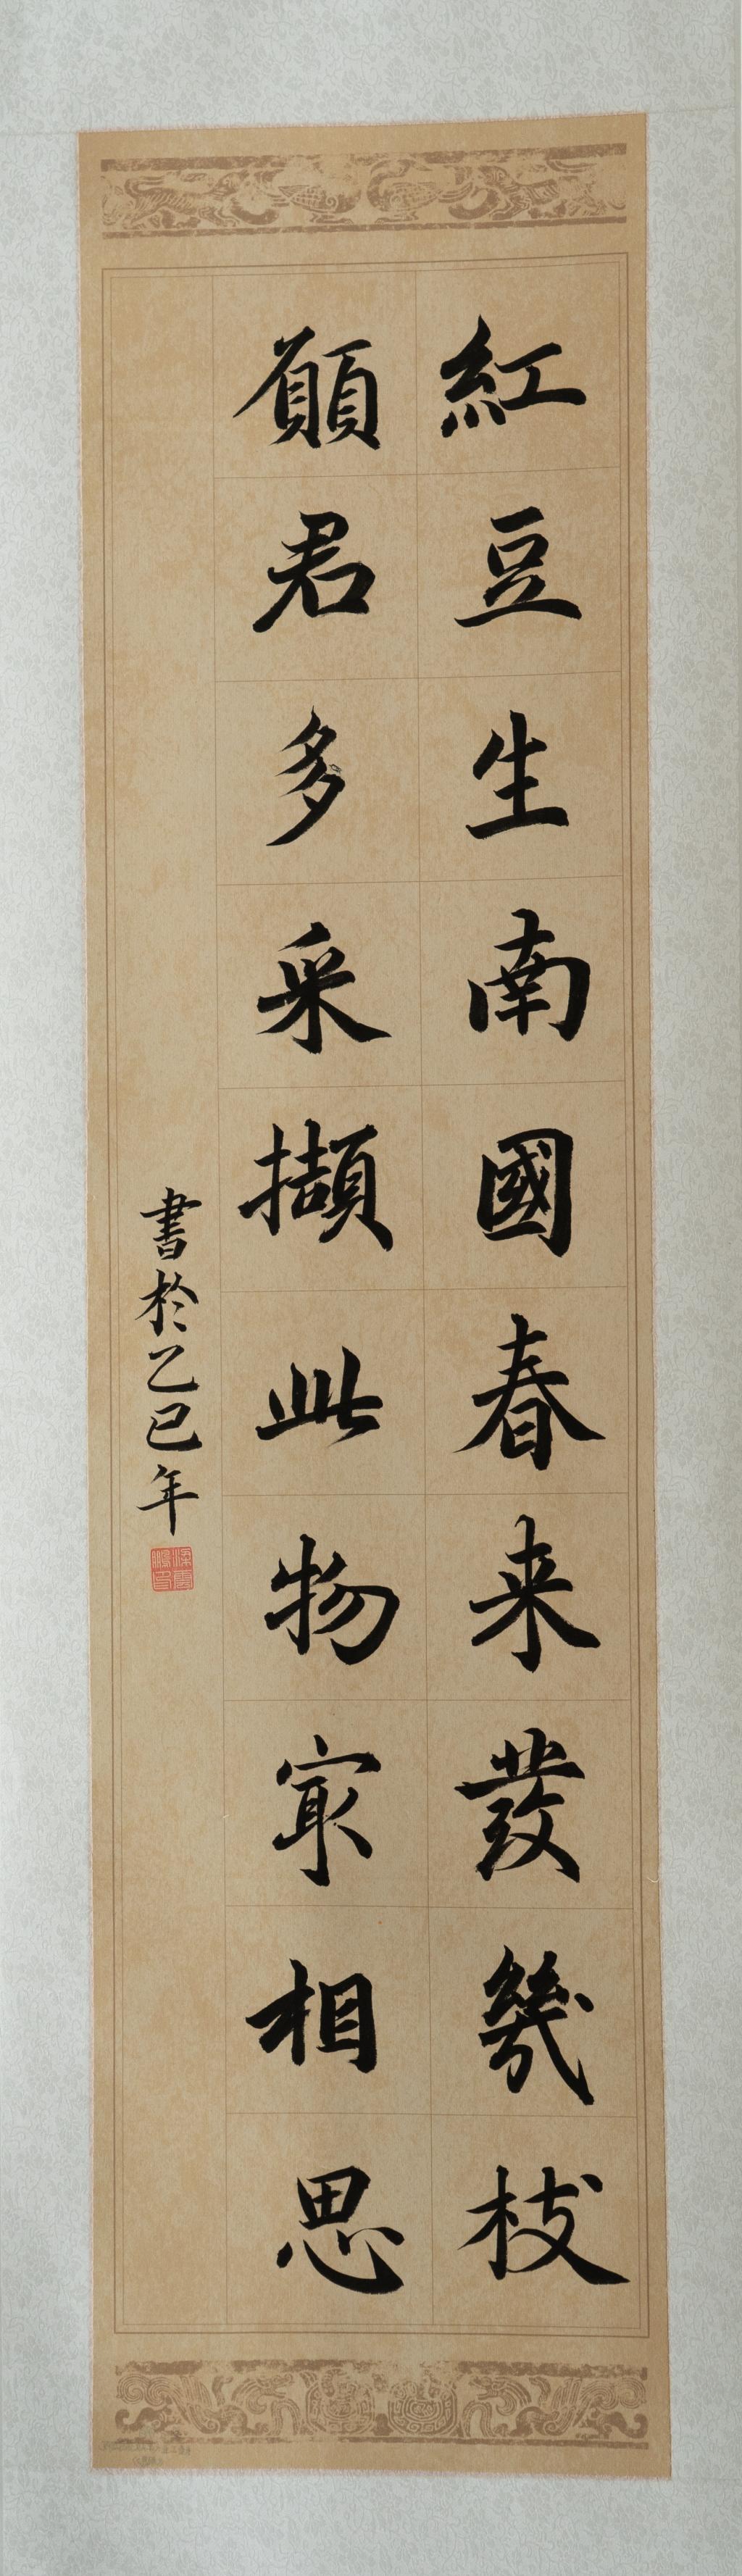 紅豆生南國春来發幾枝
願君多采擷此物冣相思
書於乙巳年